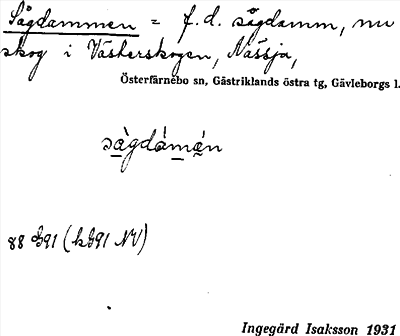 Sågdammen = f. d. sågdamm, nu
skog i Västerskogen, Nässja,
Österfärnebo sn, Gästriklands östra tg, Gävleborgs l.
sàgdámán
88
Ingegärd Isaksson 1931